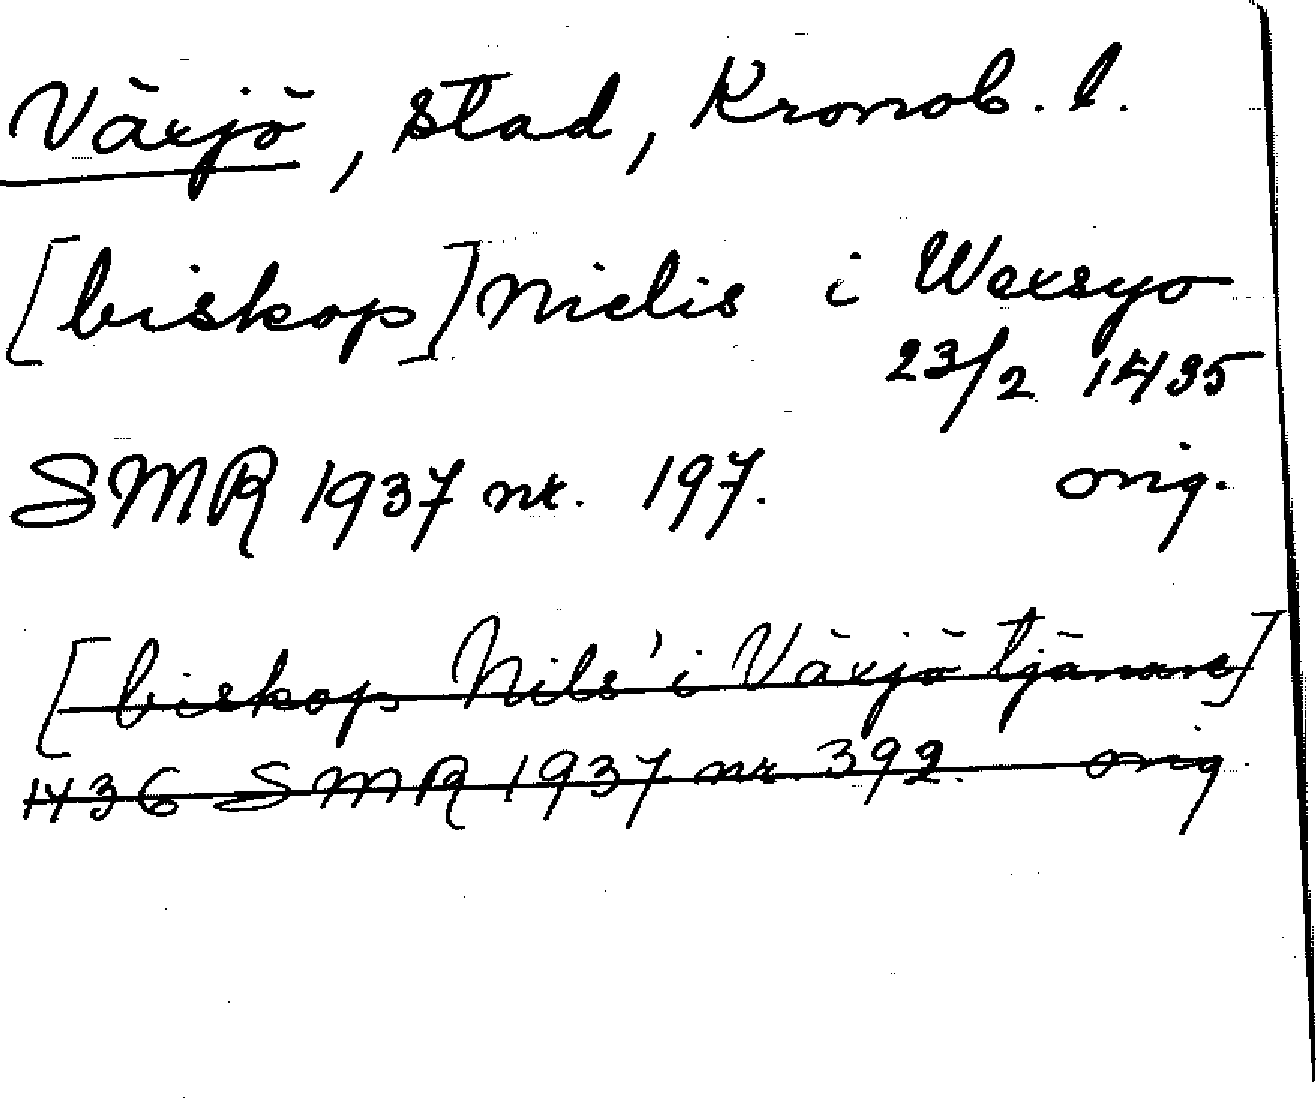 Växjö, stad, Kronob. l.
[biskop] Nielis i Wexsyo
23/2 1435
SMR 1937 nr. 197. orig.
[biskop Nils' i Växjö tjänare]
1436 SMR 1937 nr. 392. orig.